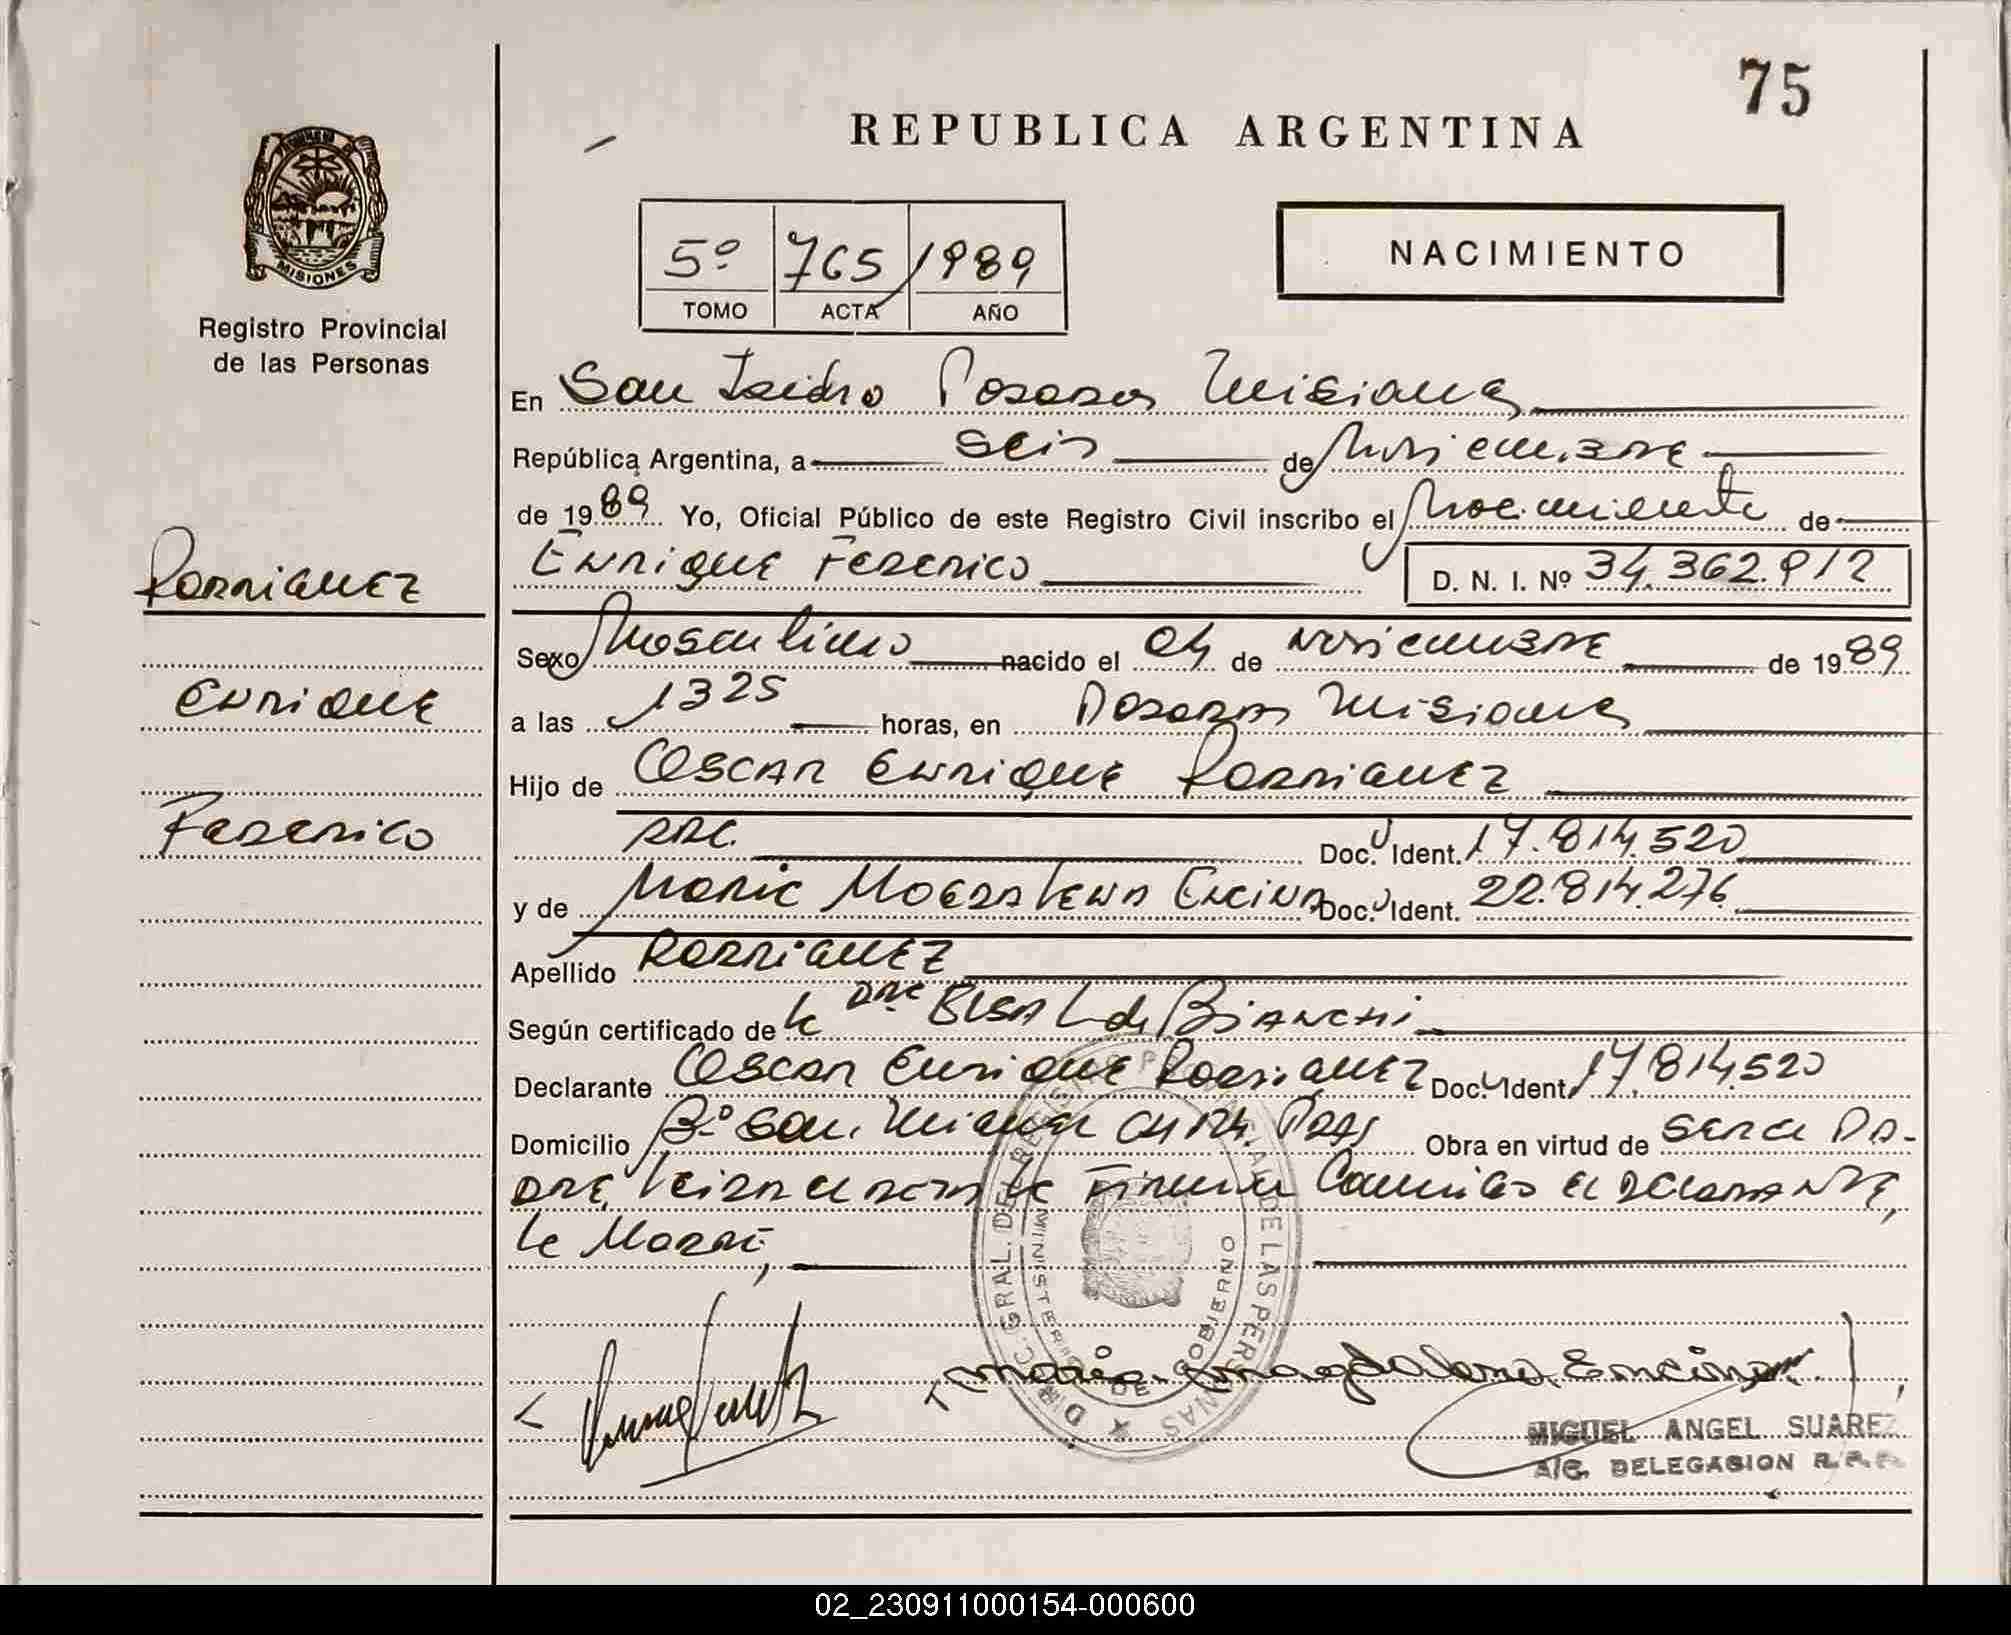 75
REPUBLICA ARGENTINA
MISIONES
Registro Provincial
de las Personas
5º 765 1989
TOMO ACTA AÑO
NACIMIENTO
En San Isidro Posadas Misiones
República Argentina, a seis de Noviembre
de 1989 Yo, Oficial Público de este Registro Civil inscribo el Nacimiento de
Rodriguez
Enrique Federico D. N. I. Nº 34.362.912
Sexo Masculino nacido el 04 de Noviembre de 1989
Enrique
a las 1325 horas, en Posadas Misiones
Hijo de Oscar Enrique Rodriguez
Federico
Doc. Ident. 17.814.520
y de Maria Magdalena Encina Doc. Ident. 22.814.276
Apellido Rodriguez
Según certificado de la Elsa L de Bianchi
Declarante Oscar Enrique Rodriguez Doc. Ident. 17.814.520
Domicilio Bº San Miguel Obra en virtud de ser el Pa-
dre, Leida el acta la Firman Conmigo el declarante,
la Madre,
DIREC. GRAL. DEL REGISTRO PROVINCIAL DE LAS PERSONAS
MINISTERIO DE GOBIERNO
Maria Magdalena Encina
MIGUEL ANGEL SUAREZ
A/C. DELEGACION R.P.P.
02_230911000154-000600